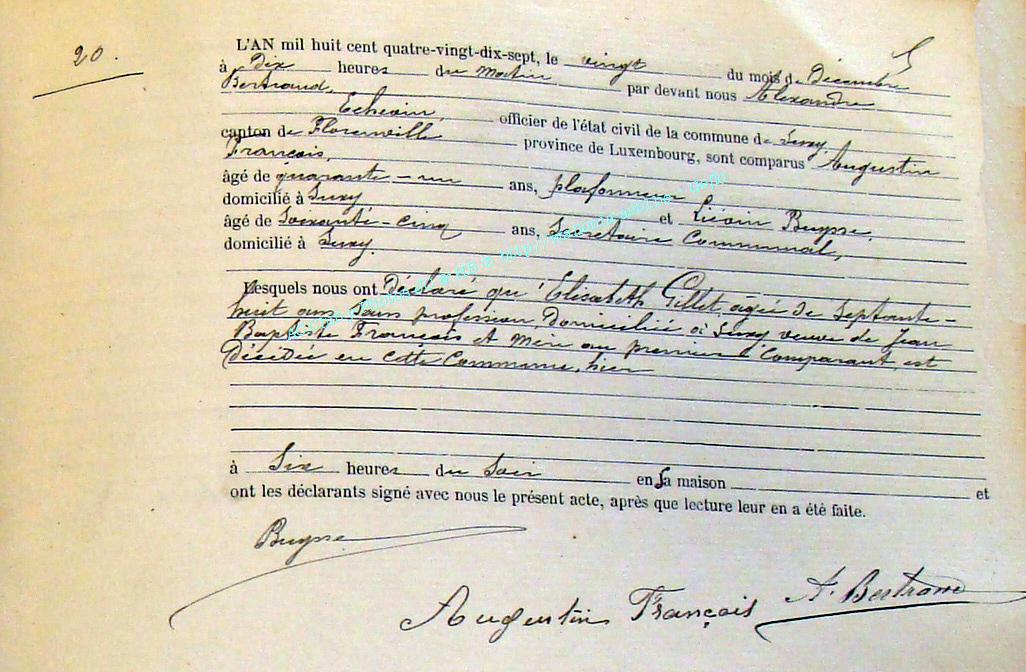 20.
L'AN mil huit cent quatre-vingt-dix-sept, le vingt du mois de Décembre
à Dix heures du matin par devant nous Alexandre
Bertrand,
Echevin, officier de l'état civil de la commune de Suxy,
canton de Florenville province de Luxembourg, sont comparus Augustin
François,
âgé de quarante-un ans, plafonneur
domicilié à Suxy et Liévin Buysse,
âgé de Soixante-cinq ans, Secrétaire Communal,
domicilié à Suxy.
Lesquels nous ont déclaré qu'Elisabeth Gillet, agée de Septante-
huit ans Sans profession, Domiciliée à Suxy veuve de Jean
Baptiste François et mère au premier Comparant, est
Décédée en cette Commune, hier
à Six heures du Soir en sa maison et
ont les déclarants signé avec nous le présent acte, après que lecture leur en a été faite.
Buysse
Augustin François A. Bertrand